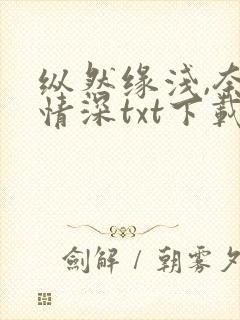 纵然缘浅,奈
情深txt下載
劍解 / 朝雾夕